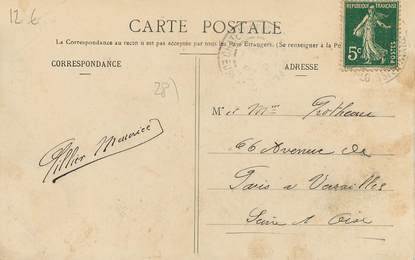 12 €
CARTE POSTALE
REPUBLIQUE FRANÇAISE
La Correspondance au recto n'est pas acceptée par tous les Pays Etrangers. (Se renseigner à la Po
5c
POSTES
CORRESPONDANCE
ADRESSE
28)
M et Mme
66 Avenue de
Paris à Versailles
Seine & Oise
Tillier Maurice